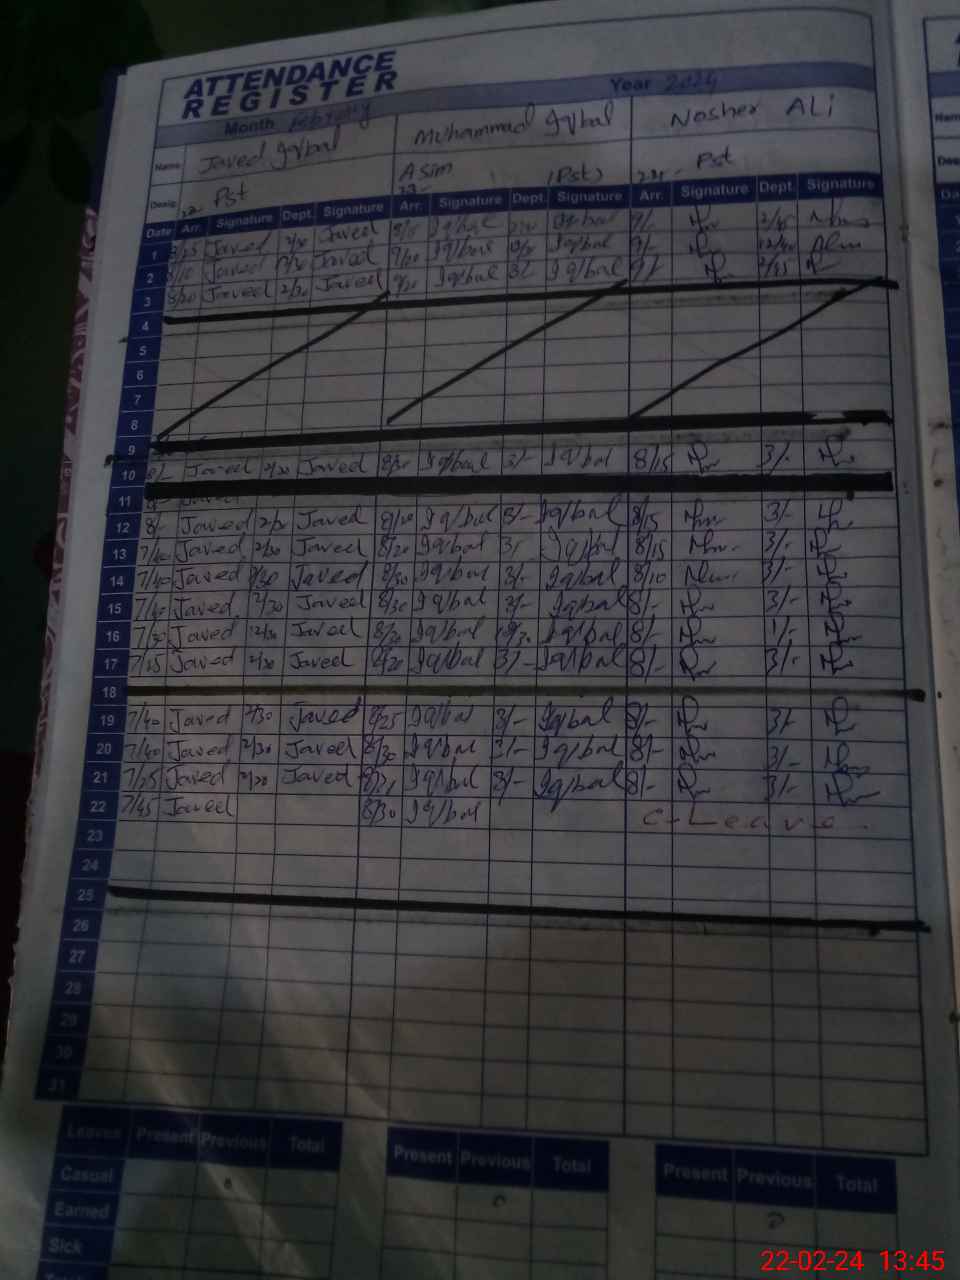 ATTENDANCE
REGISTER
Month February Year 2024
Name Javed Iqbal Muhammad Iqbal Nosher ALi
Asim
Desig. Pst (Pst) Pst
Date Arr. Signature Dept. Signature Arr. Signature Dept. Signature Arr. Signature Dept. Signature
1 Javed Javed 8/15 Iqbal Iqbal 9/-
2 8/10 Javed Javed 9/20 Iqbal Iqbal 9/- 12/40
3 8/20 Javed 2/30 Javed 9/20 Iqbal 3/- Iqbal 9/- 2/45
4
5
6
7
8
9
10 8/- Javed 2/30 Javed 8/30 Iqbal 3/- Iqbal 8/15 3/-
11
12 8/- Javed 2/30 Javed 8/20 Iqbal 3/- Iqbal 8/15 3/-
13 7/40 Javed 2/30 Javed 8/20 Iqbal 3/- Iqbal 8/15 3/-
14 7/40 Javed 2/30 Javed 8/30 Iqbal 3/- Iqbal 8/10 3/-
15 7/40 Javed 2/30 Javed 8/30 Iqbal 3/- Iqbal 8/- 3/-
16 7/30 Javed 12/30 Javed Iqbal Iqbal 8/- 1/-
17 7/25 Javed 2/30 Javed 8/20 Iqbal 3/- Iqbal 8/- 3/-
18
19 7/40 Javed 2/30 Javed 8/25 Iqbal 3/- Iqbal 8/- 3/-
20 7/40 Javed 2/30 Javed 8/30 Iqbal 3/- Iqbal 8/- 3/-
21 7/25 Javed 2/30 Javed Iqbal 3/- Iqbal 8/- 3/-
22 7/45 Javed 8/30 Iqbal C-Leave
23
24
25
26
27
28
29
30
31
Leaves Present Previous Total Present Previous Total Present Previous Total
Casual
Earned
Sick
22-02-24 13:45